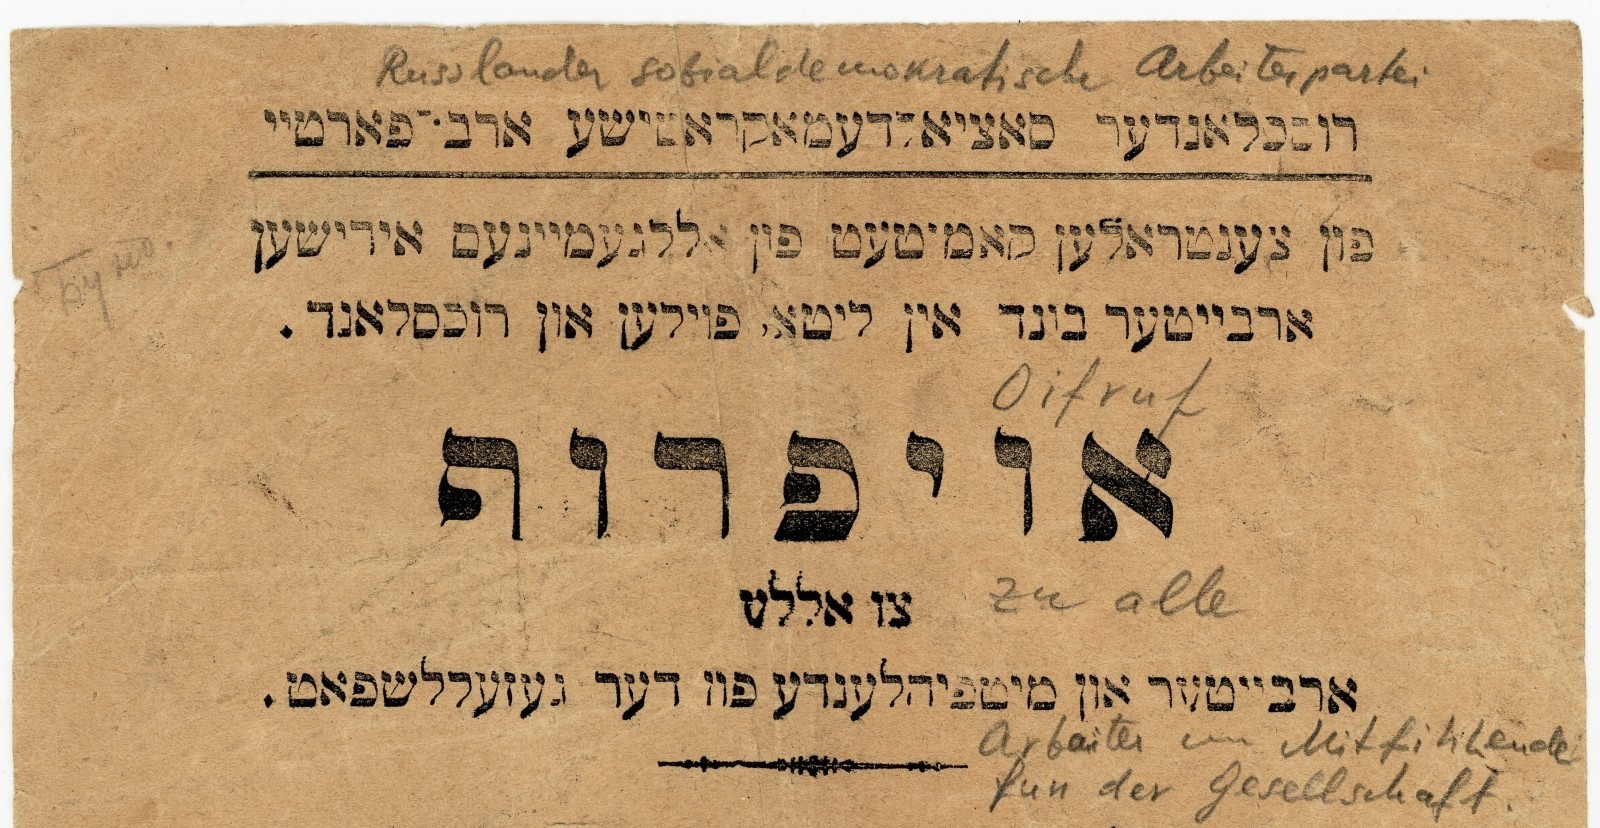 Russlander sozialdemokratische Arbeiterpartei
רוססלאנדער סאציאלדעמאקראטישע ארב־פארטיי
פון צענטראלען קאמיטעט פון אללגעמיינעם אידישען
ארבייטער בונד אין ליטא, פוילען און רוססלאנד.
Oifruf
אויפרוף
צו אללע zu alle
ארבייטער און מיטפיהלענדע פון דער געזעללשפאט.
Arbaiter un Mitfihlende
fun der Gesellschaft.